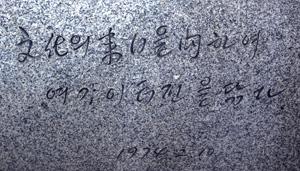 文化의 來日을 向하여
여기 이 터전을 닦다
1974. 2. 10